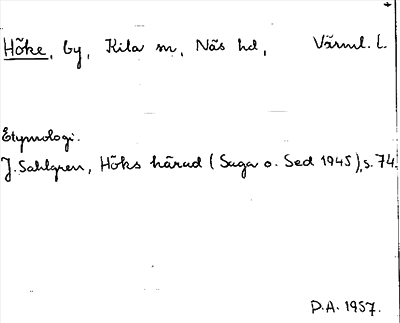 Höke, by, Kila sn, Näs hd, Värml. l.
Etymologi.
J. Sahlgren, Höks härad (Saga o. Sed 1945), s. 74.
D.A. 1957.